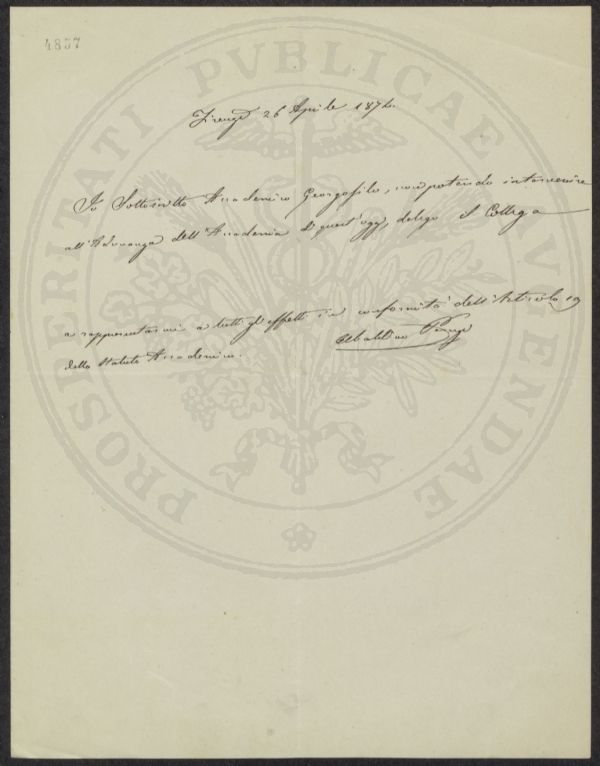 4857
PROSPERITATI PVBLICAE AVGENDAE
Firenze 26 Aprile 1874
Io Sottoscritto Accademico Georgofilo, non potendo intervenire
all'Adunanza dell'Accademia di quest'oggi, delego il Collega
a rappresentarmi a tutti gli effetti in conformità dell'Articolo 19
dello Statuto Accademico.
Ubaldino Peruzzi